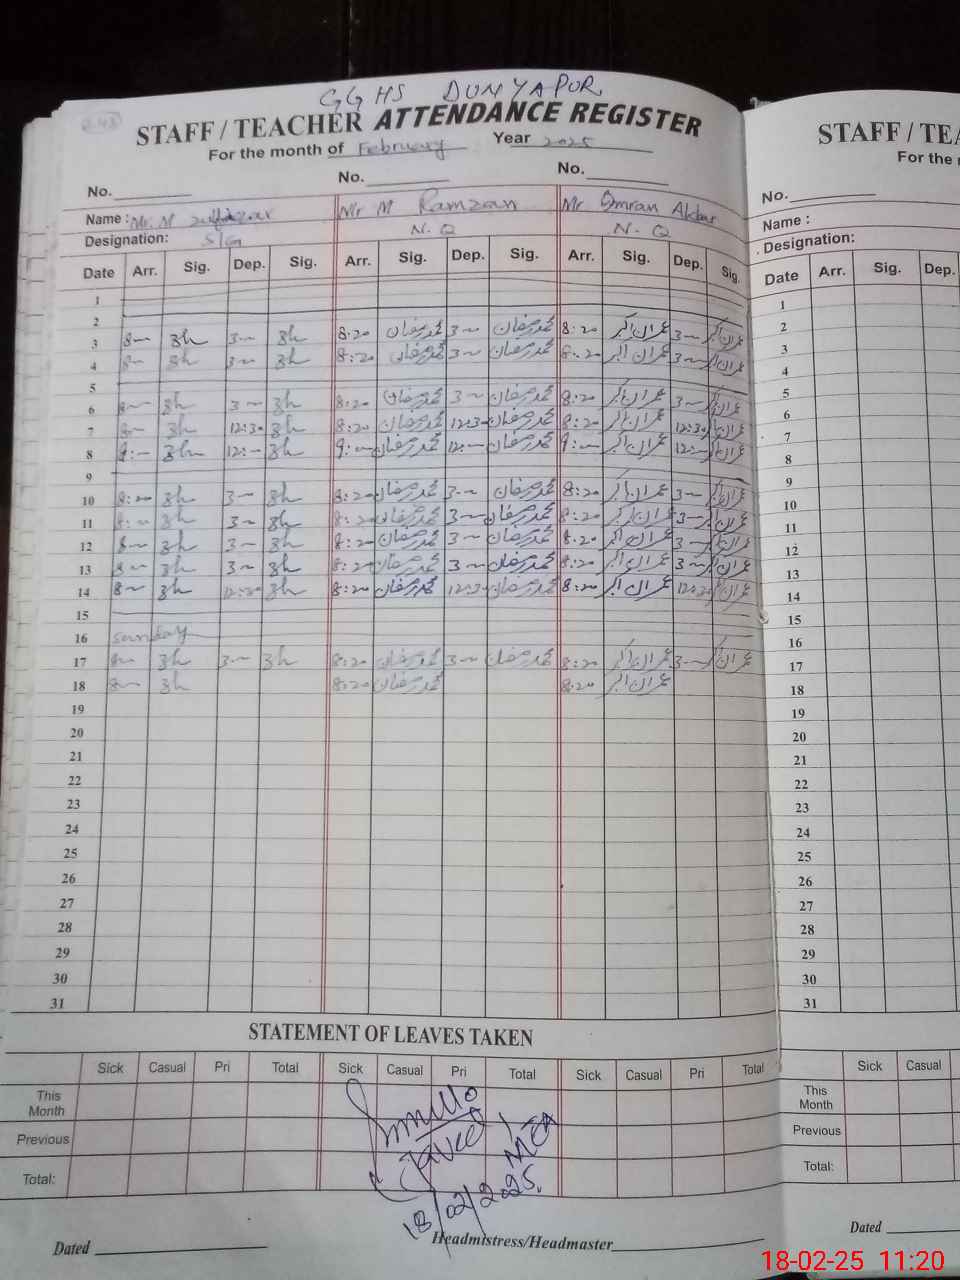 GGHS DUNYAPUR
STAFF / TEACHER ATTENDANCE REGISTER
For the month of February Year 2025
No. No. No.
Name : Mr. M Mr M Ramzan Mr Omran Akbar
Designation: S/G N. Q N. Q
Date Arr. Sig. Dep. Sig. Arr. Sig. Dep. Sig. Arr. Sig. Dep. Sig.
1
2
3 8— 3h 3— 3h 8:20 محمد رمضان 3— محمد رمضان 8:20 عمران اکبر 3— عمران اکبر
4 8— 3h 3— 3h 8:20 محمد رمضان 3— محمد رمضان 8:20 عمران اکبر 3— عمران اکبر
5
6 8— 3h 3— 3h 8:20 محمد رمضان 3— محمد رمضان 8:20 عمران اکبر 3— عمران اکبر
7 8— 3h 12:30 3h 8:20 محمد رمضان 12:30 محمد رمضان 8:20 عمران اکبر 12:30 عمران اکبر
8 9:— 3h 12:— 3h 9:— محمد رمضان 12:— محمد رمضان 9:— عمران اکبر 12:— عمران اکبر
9
10 8:20 3h 3— 3h 8:20 محمد رمضان 3— محمد رمضان 8:20 عمران اکبر 3— عمران اکبر
11 8:— 3h 3— 3h 8:20 محمد رمضان 3— محمد رمضان 8:20 عمران اکبر 3— عمران اکبر
12 8— 3h 3— 3h 8:20 محمد رمضان 3— محمد رمضان 8:20 عمران اکبر 3— عمران اکبر
13 8— 3h 3— 3h 8:20 محمد رمضان 3— محمد رمضان 8:20 عمران اکبر 3— عمران اکبر
14 8— 3h 12:30 3h 8:20 محمد رمضان 12:30 محمد رمضان 8:20 عمران اکبر 12:30 عمران اکبر
15
16 Sunday
17 8— 3h 3— 3h 8:20 محمد رمضان 3— محمد رمضان 8:20 عمران اکبر 3— عمران اکبر
18 8— 3h 8:20 محمد رمضان 8:20 عمران اکبر
19
20
21
22
23
24
25
26
27
28
29
30
31
STATEMENT OF LEAVES TAKEN
Sick Casual Pri Total Sick Casual Pri Total Sick Casual Pri Total
This Month
Previous
Total:
Javed
MEA
18/02/2025.
Dated Headmistress/Headmaster
STAFF / TEA
For the
No.
Name :
Designation:
Date Arr. Sig. Dep.
1
2
3
4
5
6
7
8
9
10
11
12
13
14
15
16
17
18
19
20
21
22
23
24
25
26
27
28
29
30
31
Sick Casual
This Month
Previous
Total:
Dated
18-02-25 11:20